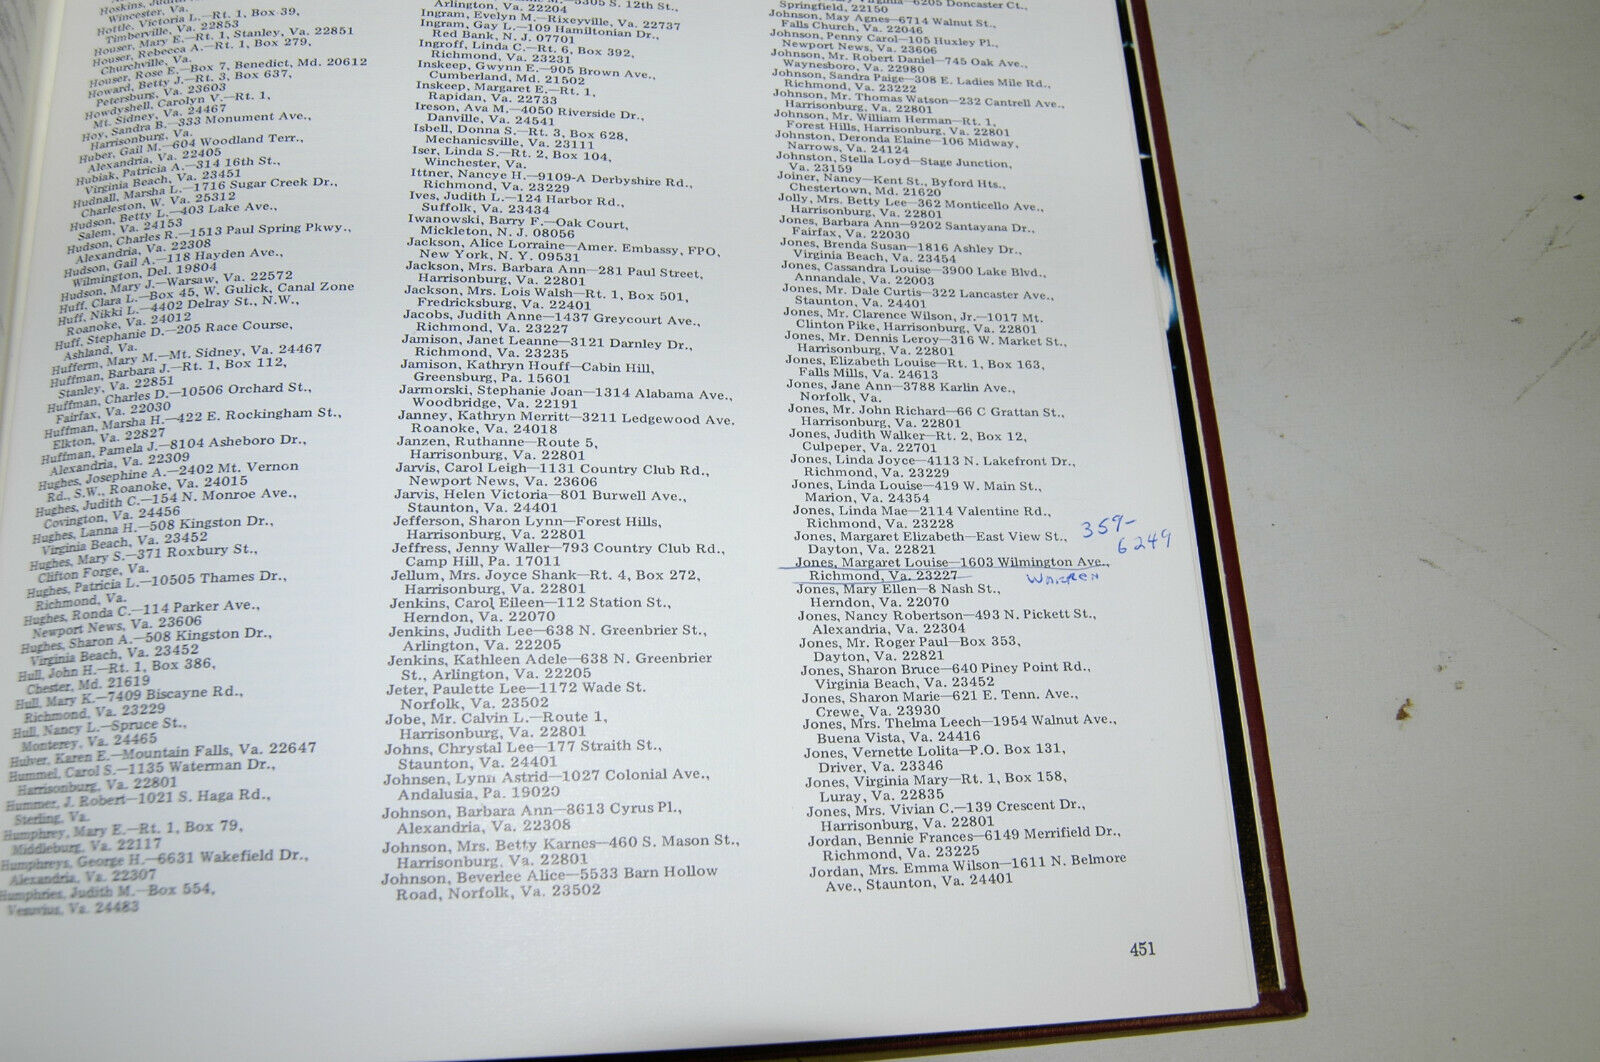 Hoskins,
Wincester, Va.
Hottle, Victoria L.—Rt. 1, Box 39,
Timberville, Va. 22853
Houser, Mary E.—Rt. 1, Stanley, Va. 22851
Houser, Rebecca A.—Rt. 1, Box 279,
Churchville, Va.
Houser, Rose E.—Box 7, Benedict, Md. 20612
Howard, Betty J.—Rt. 3, Box 637,
Petersburg, Va. 23603
Howdyshell, Carolyn V.—Rt. 1,
Mt. Sidney, Va. 24467
Hoy, Sandra B.—333 Monument Ave.,
Harrisonburg, Va.
Huber, Gail M.—604 Woodland Terr.,
Alexandria, Va. 22405
Hubiak, Patricia A.—314 16th St.,
Virginia Beach, Va. 23451
Hudnall, Marsha L.—1716 Sugar Creek Dr.,
Charleston, W. Va. 25312
Hudson, Betty L.—403 Lake Ave.,
Salem, Va. 24153
Hudson, Charles R.—1513 Paul Spring Pkwy.,
Alexandria, Va. 22308
Hudson, Gail A.—118 Hayden Ave.,
Wilmington, Del. 19804
Hudson, Mary J.—Warsaw, Va. 22572
Huff, Clara L.—Box 45, W. Gulick, Canal Zone
Huff, Nikki L.—4402 Delray St., N.W.,
Roanoke, Va. 24012
Huff, Stephanie D.—205 Race Course,
Ashland, Va.
Hufferm, Mary M.—Mt. Sidney, Va. 24467
Huffman, Barbara J.—Rt. 1, Box 112,
Stanley, Va. 22851
Huffman, Charles D.—10506 Orchard St.,
Fairfax, Va. 22030
Huffman, Marsha H.—422 E. Rockingham St.,
Elkton, Va. 22827
Huffman, Pamela J.—8104 Asheboro Dr.,
Alexandria, Va. 22309
Hughes, Josephine A.—2402 Mt. Vernon
Rd., S.W., Roanoke, Va. 24015
Hughes, Judith C.—154 N. Monroe Ave.,
Covington, Va. 24456
Hughes, Lanna H.—508 Kingston Dr.,
Virginia Beach, Va. 23452
Hughes, Mary S.—371 Roxbury St.,
Clifton Forge, Va.
Hughes, Patricia L.—10505 Thames Dr.,
Richmond, Va.
Hughes, Ronda C.—114 Parker Ave.,
Newport News, Va. 23606
Hughes, Sharon A.—508 Kingston Dr.,
Virginia Beach, Va. 23452
Hull, John H.—Rt. 1, Box 386,
Chester, Md. 21619
Hull, Mary K.—7409 Biscayne Rd.,
Richmond, Va. 23229
Hull, Nancy L.—Spruce St.,
Monterey, Va. 24465
Hulver, Karen E.—Mountain Falls, Va. 22647
Hummel, Carol S.—1135 Waterman Dr.,
Harrisonburg, Va. 22801
Hummer, J. Robert—1021 S. Haga Rd.,
Sterling, Va.
Humphrey, Mary E.—Rt. 1, Box 79,
Middleburg, Va. 22117
Humphreys, George H.—6631 Wakefield Dr.,
Alexandria, Va. 22307
Humphries, Judith M.—Box 554,
Vesuvius, Va. 24483
5305 S. 12th St.,
Arlington, Va. 22204
Ingram, Evelyn M.—Rixeyville, Va. 22737
Ingram, Gay L.—109 Hamiltonian Dr.,
Red Bank, N. J. 07701
Ingroff, Linda C.—Rt. 6, Box 392,
Richmond, Va. 23231
Inskeep, Gwynn E.—905 Brown Ave.,
Cumberland, Md. 21502
Inskeep, Margaret E.—Rt. 1,
Rapidan, Va. 22733
Ireson, Ava M.—4050 Riverside Dr.,
Danville, Va. 24541
Isbell, Donna S.—Rt. 3, Box 628,
Mechanicsville, Va. 23111
Iser, Linda S.—Rt. 2, Box 104,
Winchester, Va.
Ittner, Nancye H.—9109-A Derbyshire Rd.,
Richmond, Va. 23229
Ives, Judith L.—124 Harbor Rd.,
Suffolk, Va. 23434
Iwanowski, Barry F.—Oak Court,
Mickleton, N. J. 08056
Jackson, Alice Lorraine—Amer. Embassy, FPO,
New York, N. Y. 09531
Jackson, Mrs. Barbara Ann—281 Paul Street,
Harrisonburg, Va. 22801
Jackson, Mrs. Lois Walsh—Rt. 1, Box 501,
Fredricksburg, Va. 22401
Jacobs, Judith Anne—1437 Greycourt Ave.,
Richmond, Va. 23227
Jamison, Janet Leanne—3121 Darnley Dr.,
Richmond, Va. 23235
Jamison, Kathryn Houff—Cabin Hill,
Greensburg, Pa. 15601
Jarmorski, Stephanie Joan—1314 Alabama Ave.,
Woodbridge, Va. 22191
Janney, Kathryn Merritt—3211 Ledgewood Ave.
Roanoke, Va. 24018
Janzen, Ruthanne—Route 5,
Harrisonburg, Va. 22801
Jarvis, Carol Leigh—1131 Country Club Rd.,
Newport News, Va. 23606
Jarvis, Helen Victoria—801 Burwell Ave.,
Staunton, Va. 24401
Jefferson, Sharon Lynn—Forest Hills,
Harrisonburg, Va. 22801
Jeffress, Jenny Waller—793 Country Club Rd.,
Camp Hill, Pa. 17011
Jellum, Mrs. Joyce Shank—Rt. 4, Box 272,
Harrisonburg, Va. 22801
Jenkins, Carol Eileen—112 Station St.,
Herndon, Va. 22070
Jenkins, Judith Lee—638 N. Greenbrier St.,
Arlington, Va. 22205
Jenkins, Kathleen Adele—638 N. Greenbrier
St., Arlington, Va. 22205
Jeter, Paulette Lee—1172 Wade St.
Norfolk, Va. 23502
Jobe, Mr. Calvin L.—Route 1,
Harrisonburg, Va. 22801
Johns, Chrystal Lee—177 Straith St.,
Staunton, Va. 24401
Johnsen, Lynn Astrid—1027 Colonial Ave.,
Andalusia, Pa. 19020
Johnson, Barbara Ann—8613 Cyrus Pl.,
Alexandria, Va. 22308
Johnson, Mrs. Betty Karnes—460 S. Mason St.,
Harrisonburg, Va. 22801
Johnson, Beverlee Alice—5533 Barn Hollow
Road, Norfolk, Va. 23502
Virginia—6205 Doncaster Ct.,
Springfield, 22150
Johnson, May Agnes—6714 Walnut St.,
Falls Church, Va. 22046
Johnson, Penny Carol—105 Huxley Pl.,
Newport News, Va. 23606
Johnson, Mr. Robert Daniel—745 Oak Ave.,
Waynesboro, Va. 22980
Johnson, Sandra Paige—308 E. Ladies Mile Rd.,
Richmond, Va. 23222
Johnson, Mr. Thomas Watson—232 Cantrell Ave.,
Harrisonburg, Va. 22801
Johnson, Mr. William Herman—Rt. 1,
Forest Hills, Harrisonburg, Va. 22801
Johnston, Deronda Elaine—106 Midway,
Narrows, Va. 24124
Johnston, Stella Loyd—Stage Junction,
Va. 23159
Joiner, Nancy—Kent St., Byford Hts.,
Chestertown, Md. 21620
Jolly, Mrs. Betty Lee—362 Monticello Ave.,
Harrisonburg, Va. 22801
Jones, Barbara Ann—9202 Santayana Dr.,
Fairfax, Va. 22030
Jones, Brenda Susan—1816 Ashley Dr.,
Virginia Beach, Va. 23454
Jones, Cassandra Louise—3900 Lake Blvd.,
Annandale, Va. 22003
Jones, Mr. Dale Curtis—322 Lancaster Ave.,
Staunton, Va. 24401
Jones, Mr. Clarence Wilson, Jr.—1017 Mt.
Clinton Pike, Harrisonburg, Va. 22801
Jones, Mr. Dennis Leroy—316 W. Market St.,
Harrisonburg, Va. 22801
Jones, Elizabeth Louise—Rt. 1, Box 163,
Falls Mills, Va. 24613
Jones, Jane Ann—3788 Karlin Ave.,
Norfolk, Va.
Jones, Mr. John Richard—66 C Grattan St.,
Harrisonburg, Va. 22801
Jones, Judith Walker—Rt. 2, Box 12,
Culpeper, Va. 22701
Jones, Linda Joyce—4113 N. Lakefront Dr.,
Richmond, Va. 23229
Jones, Linda Louise—419 W. Main St.,
Marion, Va. 24354
Jones, Linda Mae—2114 Valentine Rd.,
Richmond, Va. 23228
Jones, Margaret Elizabeth—East View St.,
Dayton, Va. 22821
359-
6249
Jones, Margaret Louise—1603 Wilmington Ave.,
Richmond, Va. 23227
Warren
Jones, Mary Ellen—8 Nash St.,
Herndon, Va. 22070
Jones, Nancy Robertson—493 N. Pickett St.,
Alexandria, Va. 22304
Jones, Mr. Roger Paul—Box 353,
Dayton, Va. 22821
Jones, Sharon Bruce—640 Piney Point Rd.,
Virginia Beach, Va. 23452
Jones, Sharon Marie—621 E. Tenn. Ave.,
Crewe, Va. 23930
Jones, Mrs. Thelma Leech—1954 Walnut Ave.,
Buena Vista, Va. 24416
Jones, Vernette Lolita—P.O. Box 131,
Driver, Va. 23346
Jones, Virginia Mary—Rt. 1, Box 158,
Luray, Va. 22835
Jones, Mrs. Vivian C.—139 Crescent Dr.,
Harrisonburg, Va. 22801
Jordan, Bennie Frances—6149 Merrifield Dr.,
Richmond, Va. 23225
Jordan, Mrs. Emma Wilson—1611 N. Belmore
Ave., Staunton, Va. 24401
451